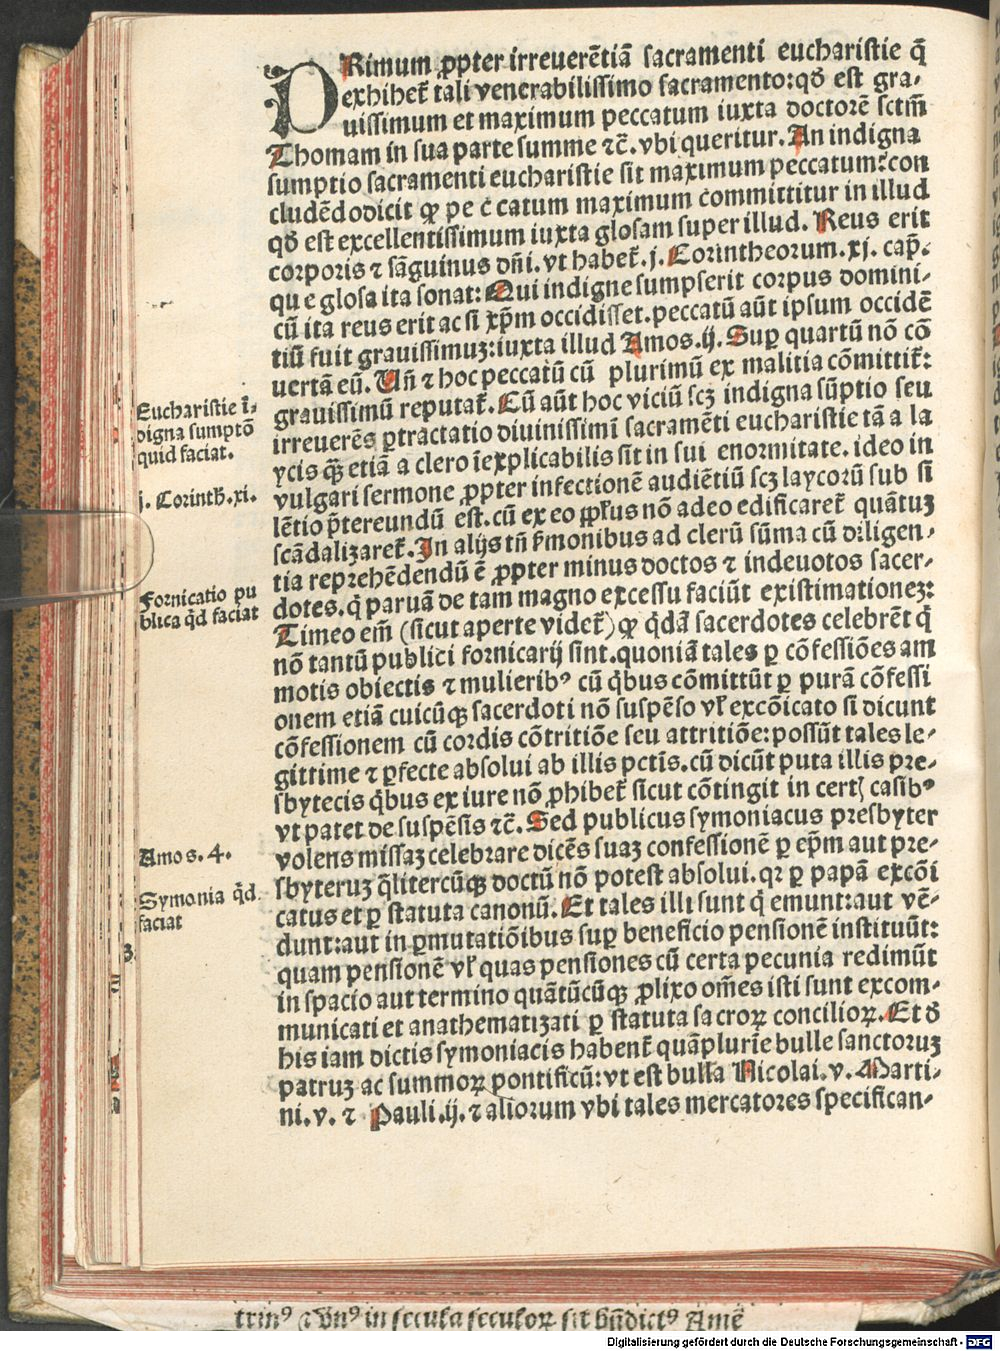 PRimum ꝓpter irreuerētiā sacramenti eucharistie q̄
exhibet᷑ tali venerabilissimo sacramento:qd̄ est gra-
uissimum et maximum peccatum iuxta doctorē sctm̄
Thomam in sua parte summe ⁊c̄. vbi queritur. An indigna
sumptio sacramenti eucharistie sit maximum peccatum: con
cludēdo dicit ꝙ pe c catum maximum committitur in illud
qd̄ est excellentissimum iuxta glosam super illud. Reus erit
corporis ⁊ sāguinus dn̄i. vt habet᷑. j. Corintheorum. xj. cap̄.
qu e glosa ita sonat: Qui indigne sumpserit corpus domini-
cū ita reus erit ac si xp̄m occidisset. peccatū aūt ipsum occidē
tiū fuit grauissimuz: iuxta illud Amos. ij. Suꝑ quartū nō cō
uertā eū. Vn̄ ⁊ hoc peccatū cū plurimū ex malitia cōmittit᷑:
grauissimū reputat᷑. Cū aūt hoc viciū scz indigna sūptio seu
irreuerēs ꝑtractatio diuinissimi sacramēti eucharistie tā a la
ycis q̄ꝫ etiā a clero īexplicabilis sit in sui enormitate. ideo in
vulgari sermone ꝓpter infectionē audiētiū scz laycorū sub si
lētio p̄tereundū est. cū ex eo ꝓrsus nō adeo edificaret᷑ quātuz
scādalizaret᷑. In alijs tn̄ s̄monibus ad clerū sūma cū diligen-
tia reprehēdendū ē ꝓpter minus doctos ⁊ indeuotos sacer-
dotes. q̇ paruā de tam magno excessu faciūt existimationez:
Timeo em̄ (sicut aperte videt᷑) ꝙ q̇dā sacerdotes celebrēt q̇
nō tantū publici fornicarij sint. quoniā tales ꝑ cōfessiōes am
motis obiectis ⁊ mulierib⁹ cū q̇bus cōmittūt ꝑ purā cōfessi
onem etiā cuicūqꝫ sacerdoti nō suspēso vl᷑ excōicato si dicunt
cōfessionem cū cordis cōtritiōe seu attritiōe: possūt tales le-
gittime ⁊ ꝑfecte absolui ab illis pctīs. cū dicūt puta illis pre-
sbytecis q̇bus ex iure nō ꝓhibet᷑ sicut cōtingit in certꝭ casib⁹
vt patet de suspēsis ⁊c̄. Sed publicus symoniacus presbyter
volens missaz celebrare dicēs suaz confessionē ꝑ ep̄m aut pre-
sbyteruz q̄litercūqꝫ doctū nō potest absolui. qꝛ ꝑ papā excōi
catus et ꝑ statuta canonū. Et tales illi sunt q̇ emunt: aut vē-
dunt: aut in ꝑmutatiōibus suꝑ beneficio pensionē instituūt:
quam pensionē vl᷑ quas pensiones cū certa pecunia redimūt
in spacio aut termino quātūcūqꝫ ꝓlixo om̄es isti sunt excom-
municati et anathematizati ꝑ statuta sacroꝝ concilioꝝ. Et d̄
his iam dictis symoniacis habent᷑ quāplurīe bulle sanctoruz
patruz ac summoꝝ pontificū: vt est bulla Nicolai. v. Marti-
ni. v. ⁊ Pauli. ij. ⁊ aliorum vbi tales mercatores specifican-
Eucharistie ī-
digna sumptō
quid faciat.
j. Corinth̄. xi.
Fornicatio pu
blica q̇d faciat
Amos. 4.
Symonia q̇d
faciat
trin⁹ ⁊ vn⁹ in secula seculoꝝ sit bn̄dict⁹ Amē
Digitalisierung gefördert durch die Deutsche Forschungsgemeinschaft - DFG